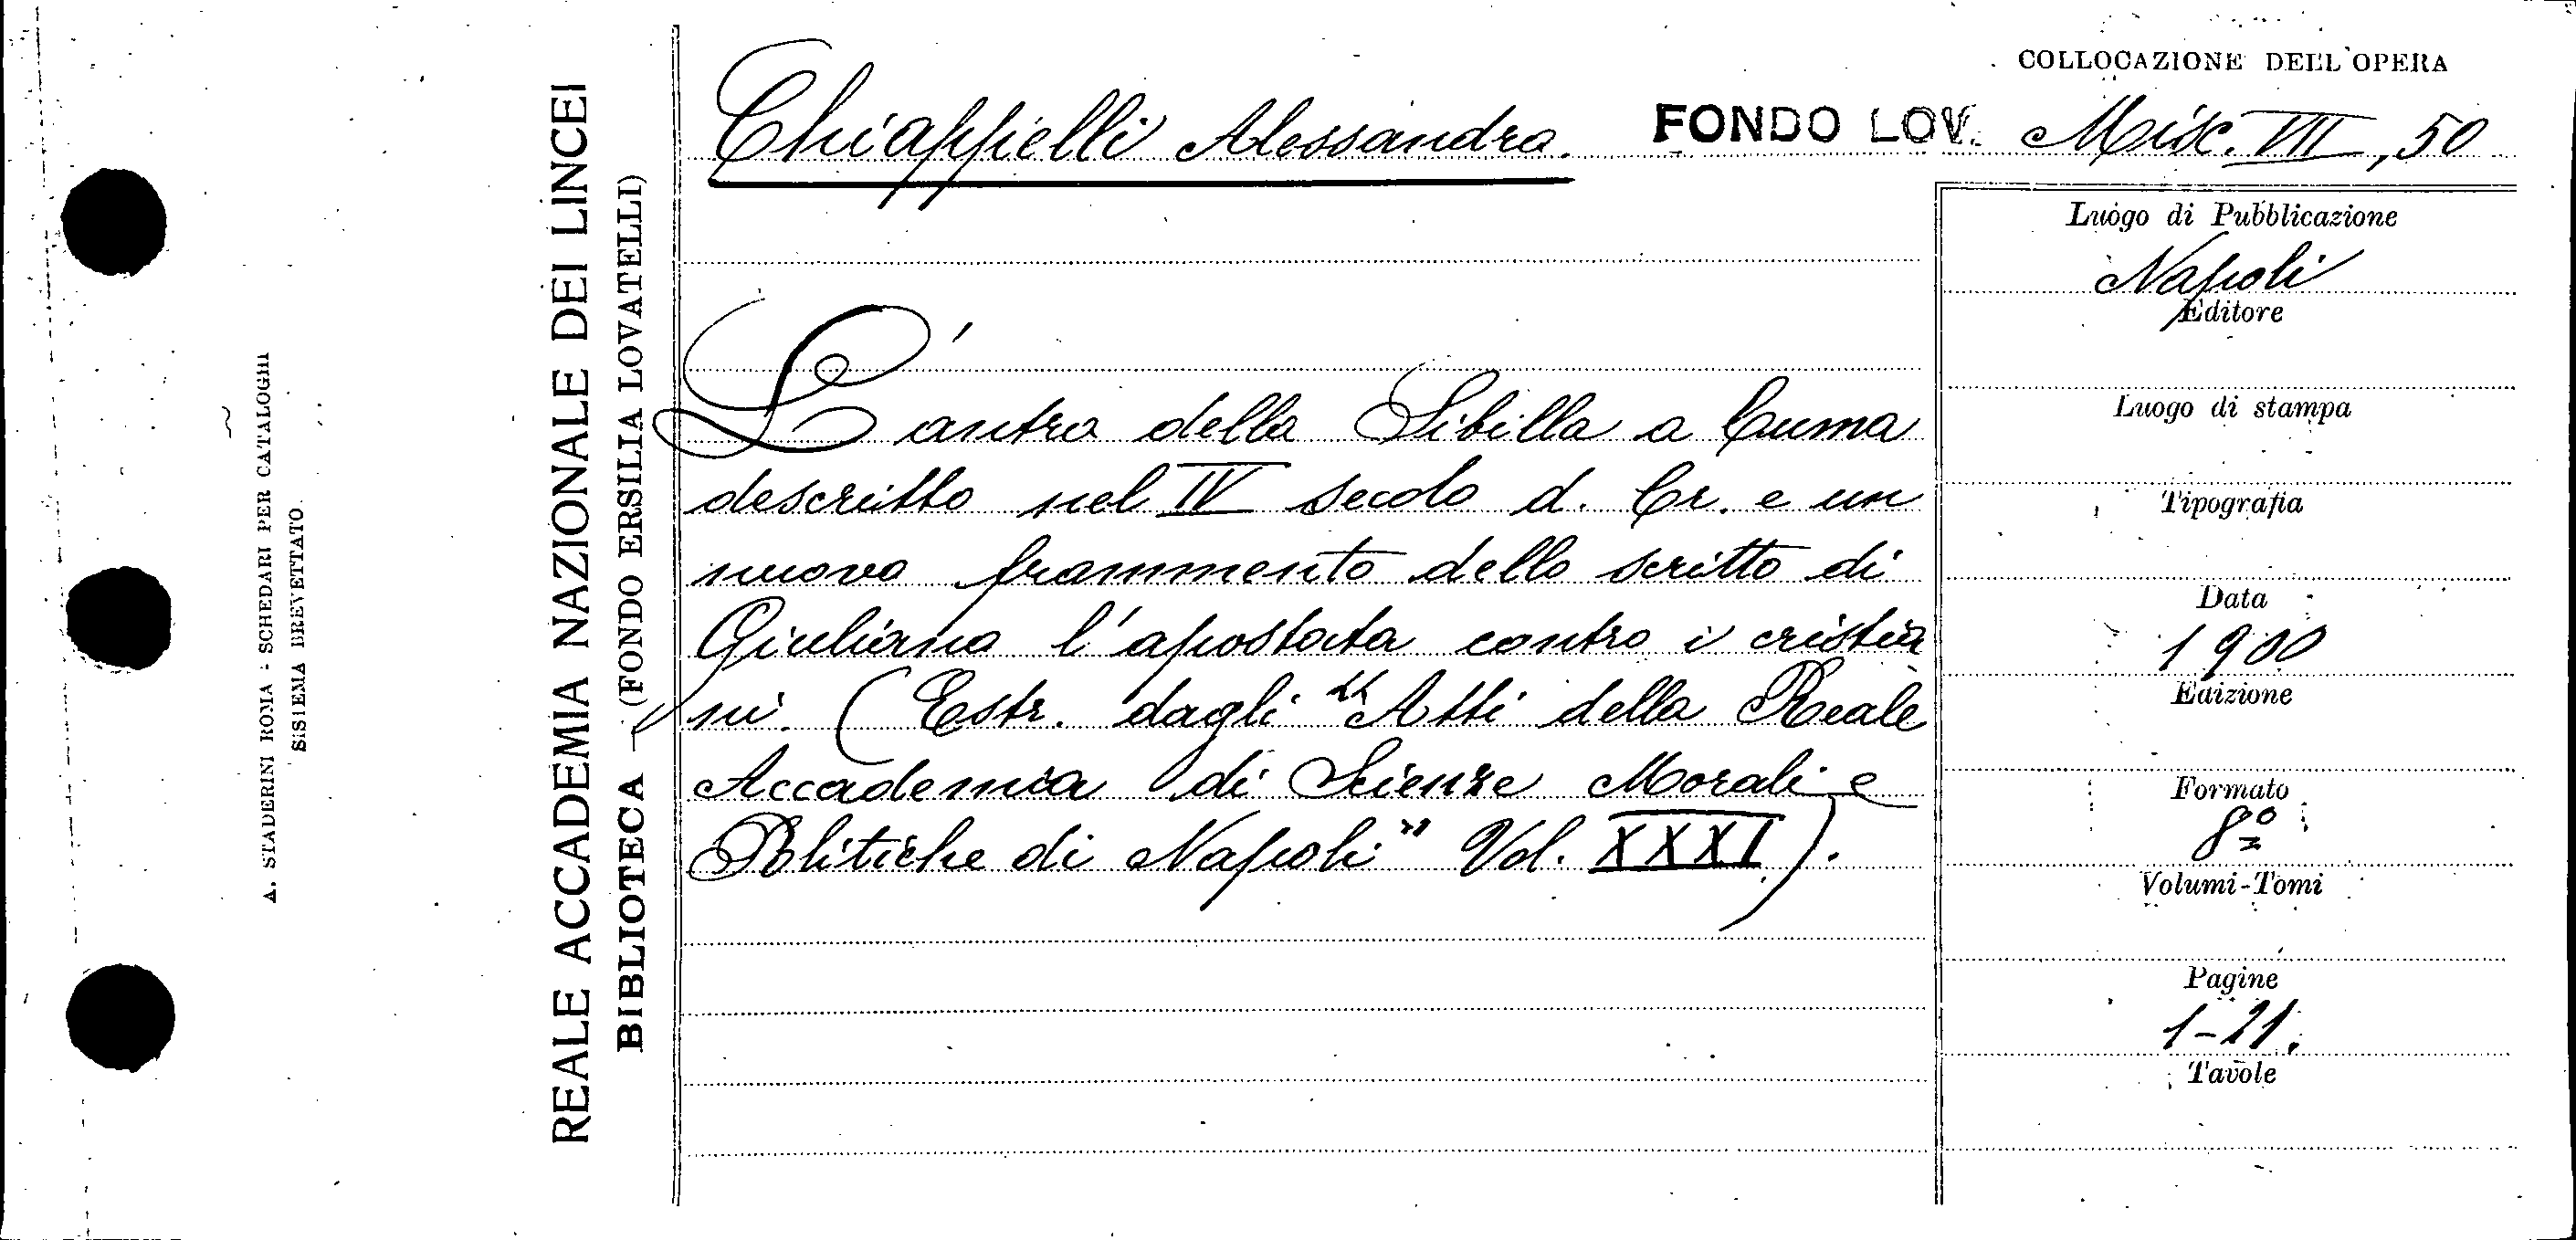 A. STADERINI ROMA - SCHEDARI PER CATALOGHI
SISTEMA BREVETTATO.
REALE ACCADEMIA NAZIONALE DEI LINCEI
BIBLIOTECA — (FONDO ERSILIA LOVATELLI)
COLLOCAZIONE DELL'OPERA
Chiappielli Alessandro. FONDO LOV. Misc. VII, 50
L'antro della Sibilla a Cuma
descritto nel IV secolo d. Cr. e un
nuovo frammento dello scritto di
Giuliano l'apostata contro i cristia
ni. (Estr. dagli "Atti della Reale
Accademia di Scienze Morali e
Politiche di Napoli" Vol. XXXI).
Luogo di Pubblicazione
Napoli
Editore
Luogo di stampa
Tipografia
Data
1900
Edizione
Formato
8º
Volumi-Tomi
Pagine
1-21.
Tavole